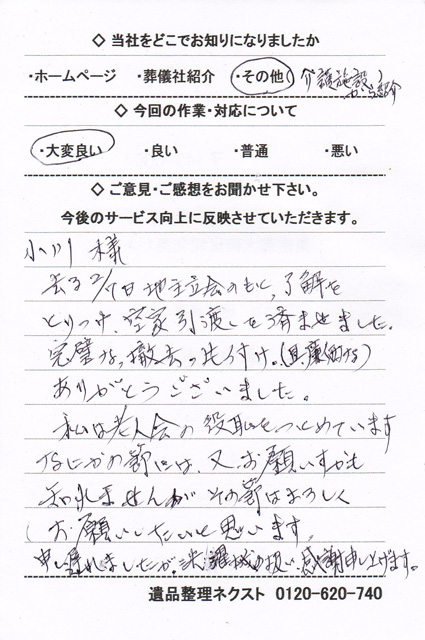 ◇ 当社をどこでお知りになりましたか
・ホームページ ・葬儀社紹介 ・その他( 介護施設から紹介 )
◇ 今回の作業・対応について
・大変良い ・良い ・普通 ・悪い
◇ ご意見・ご感想をお聞かせ下さい。
今後のサービス向上に反映させていただきます。
小川 様
去る2/7日地主立会のもと、了解を
とりつけ、空家引渡しを済ませました。
完璧な、撤去の片付け。
ありがとうございました。
私は老人会の役職をつとめています
なにかの節には、又、お願いするかも
知れませんが その節はよろしく
お願いしたいと思います。
申し遅れましたが、 の扱い 感謝申し上げます。
遺品整理ネクスト 0120-620-740